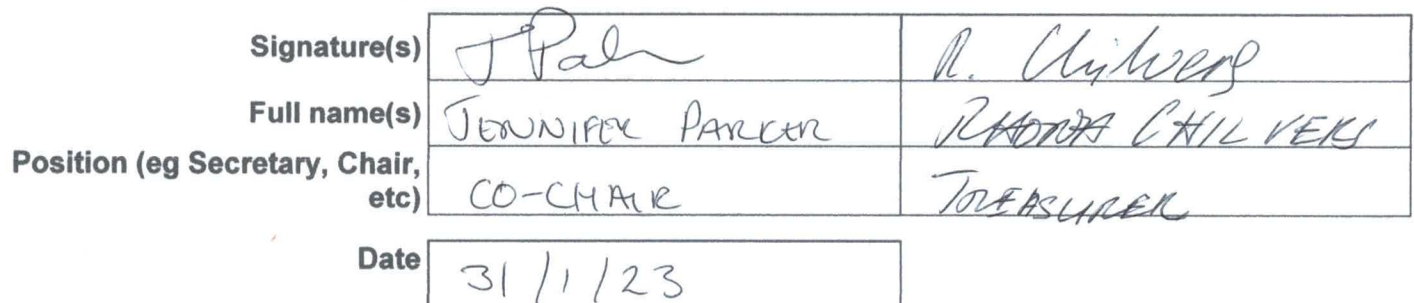 Signature(s) J Pah R. Chilvers
Full name(s) JENNIFER PARKER RHONA CHILVERS
Position (eg Secretary, Chair,
etc) CO-CHAIR TREASURER
Date 31/1/23